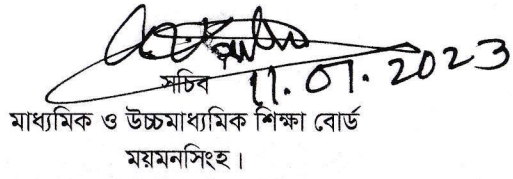 সচিব 11.07.2023
মাধ্যমিক ও উচ্চমাধ্যমিক শিক্ষা বোর্ড
ময়মনসিংহ।